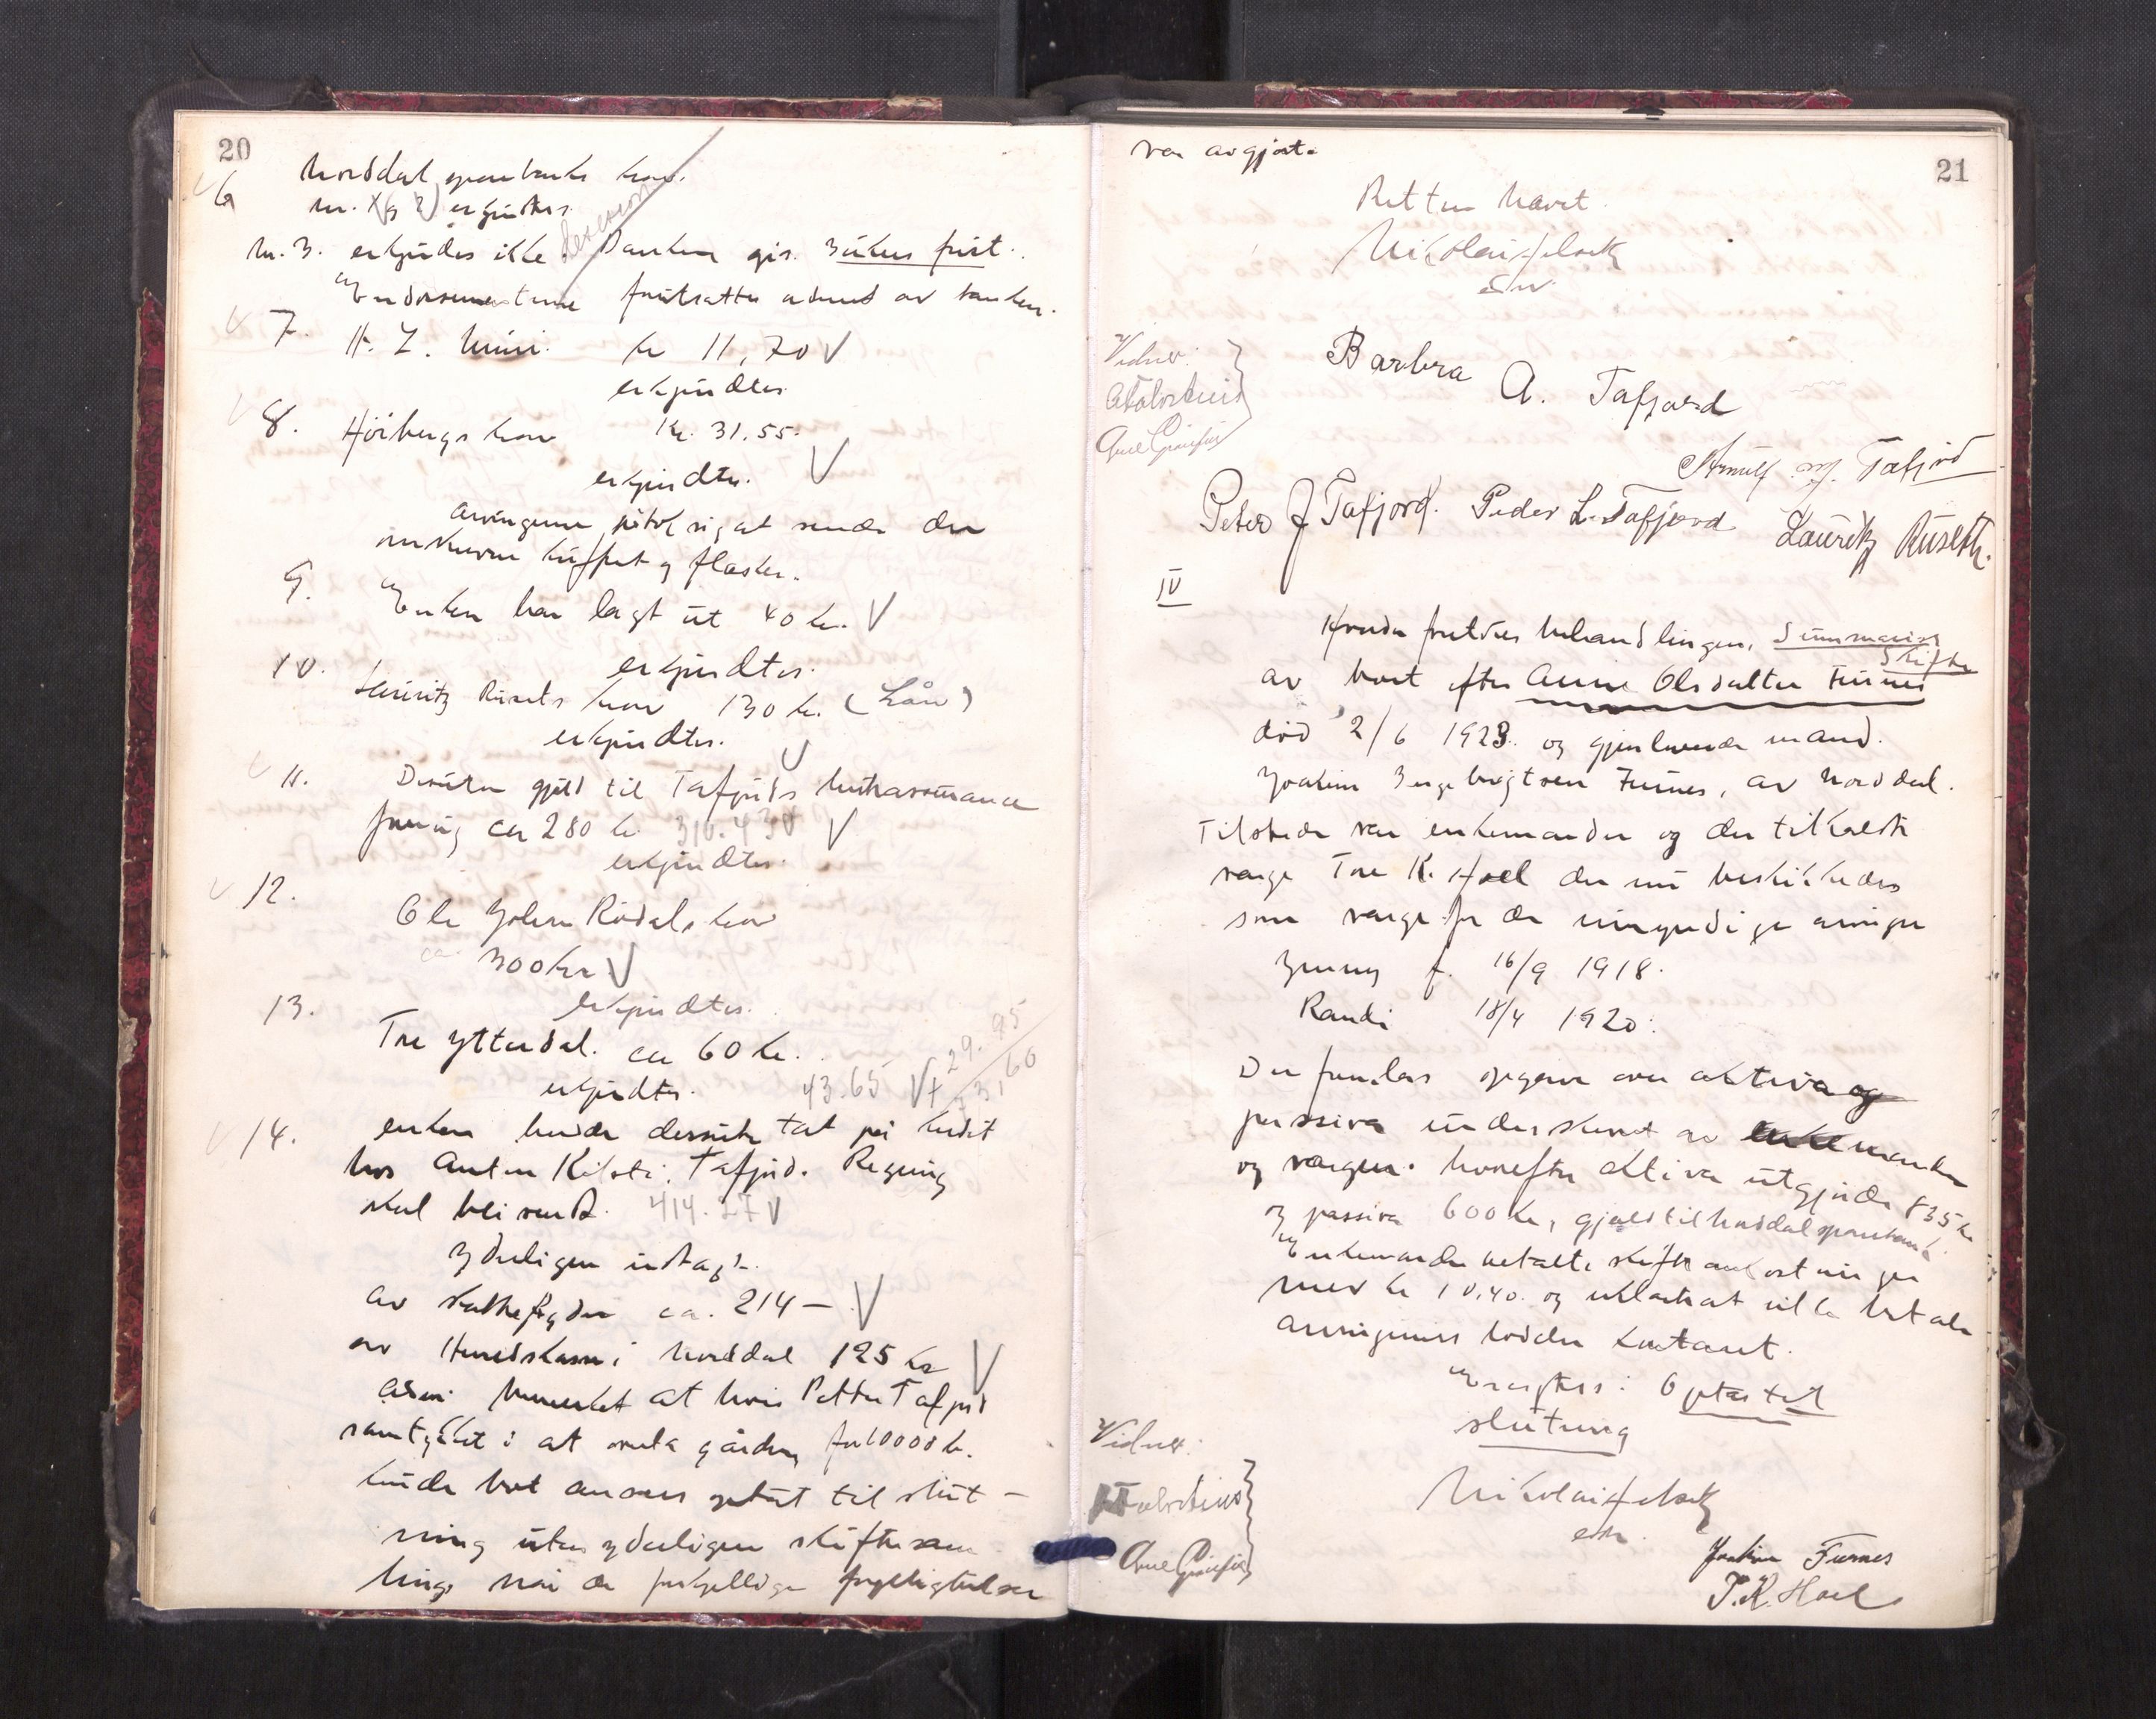 20
6 Norddal sparebanks krav.
Nr. 1 (og 2) erkjendtes.
Nr. 3. erkjendes ikke. Banken gis 3 ukers frist.
Endorsementerne fortsattes av banken.
7. H. L. kr 11,70
erkjendtes
8. Höibergs krav Kr. 31.55.
erkjendtes.
Arvingerne påtok sig at sende den
kuffert og flasker.
9. Enken har lagt ut 40 kr.
erkjendtes.
10. Lauritz Rusets krav 130 kr. (Lån)
erkjendtes.
11. Desuten gjeld til Tafjords
ca 280 kr 310.43
erkjendtes.
12. Ole Johan Rødals krav
ca 300 kr
erkjendtes.
13. Tore Ytterdal. ca 60 kr.
29.95
erkjendtes. 43.65 + 31,60
14. enken havde desuten tat på kredit
hos Anton Kilsti, Tafjord. Regning
skal bli sendt. 414.27
Yderligere indtægt.
av skattefogden ca. 214 —
av Herredskassen i Norddal 125 kr
bemerket at hvis Petter Tafjord
samtykket i at overta gården for 10000 kr.
kunde boet ansees optat til slut-
ning uten yderligere skiftesam-
ling når de forskjellige forpligtelser
21
var avgjort.
Retten hævet.
Nikolai
edv.
Vidner:
Barbra A. Tafjord
Arnulf M. Tafjord
Peter J Tafjord. Peder L. Tafjord Lauritz Ruseth.
IV
Hvorda fortsdes behandlingen, Summarisk
Skifte
av boet efter Anne Olsdatter Furnes
død 2/6 1923. og gjenlevende mand.
Joakim Furnes, av Norddal.
Tilstede var enkemanden og den tilkaldte
verge Tore K. Hoel der nu beskikkedes
som verge for de umyndige arvinger
Jenny f. 16/9 1918.
Randi 18/4 1920.
Der fremlas opgave over aktiva og
passiva underskrevet av enkemanden
og vergen. hvorefter aktiva utgjorde 835 kr
og passiva 600 kr, gjæld til Norddal sparebank.
Enkemanden betalte skifteomkostninger
med kr 10,40. og erklærte at ville betale
arvingernes lodder kontant.
Optas til
slutning
Vidner:
Nikolai
edv.
Joakim Furnes
T. K. Hoel